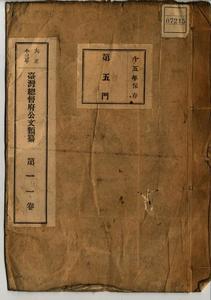 07215
十五年保存
第五門
大正
臺灣總督府公文類纂
第一一卷